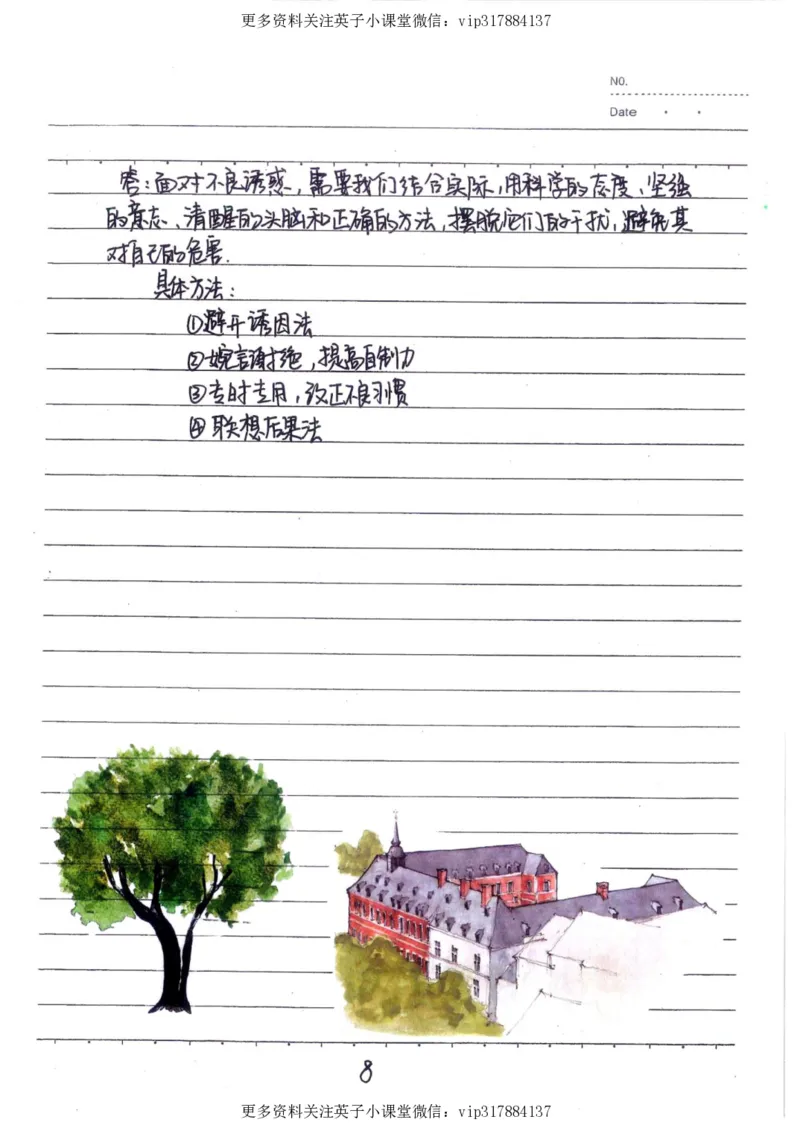 更多资料关注英子小课堂微信：vip317884137
NO.
Date
答：面对不良诱惑，需要我们结合实际，用科学的态度、坚强
的意志、清醒的头脑和正确的方法，摆脱它们的干扰，避免其
对自己的危害.
具体方法：
①避开诱因法
②婉言谢绝，提高自制力
③专时专用，改正不良习惯
④联想后果法
8
更多资料关注英子小课堂微信：vip317884137